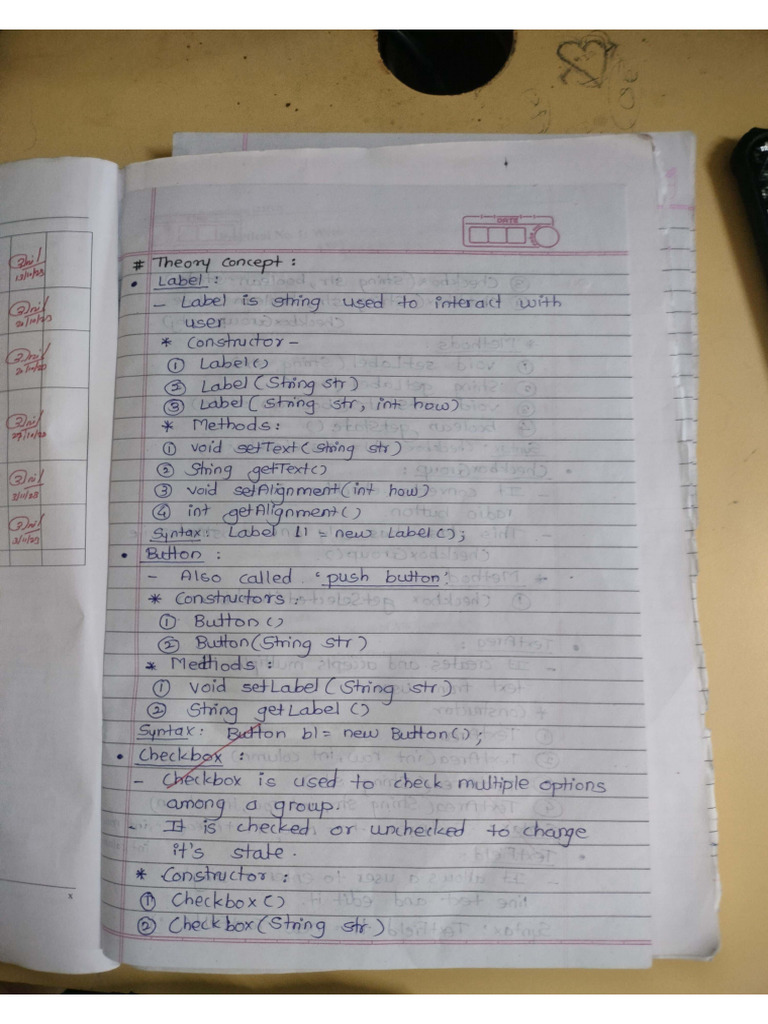 DATE
# Theory concept :
• Label :
- Label is string used to interact with
user
* Constructor -
① Label()
② Label (String str)
③ Label( String str, int how)
* Methods :
① void setText( String str)
② String getText()
③ void setAlignment(int how)
④ int getAlignment()
Syntax: Label l1 = new Label();
• Button :
- Also called 'push button'.
* Constructors :
① Button()
② Button(String str)
* Methods :
① void setLabel (String str)
② String getLabel ()
Syntax: Button b1 = new Button();
• Checkbox :
- Checkbox is used to check multiple options
among a group.
- It is checked or unchecked to change
it's state.
* Constructor :
① Checkbox()
② Checkbox(String str)